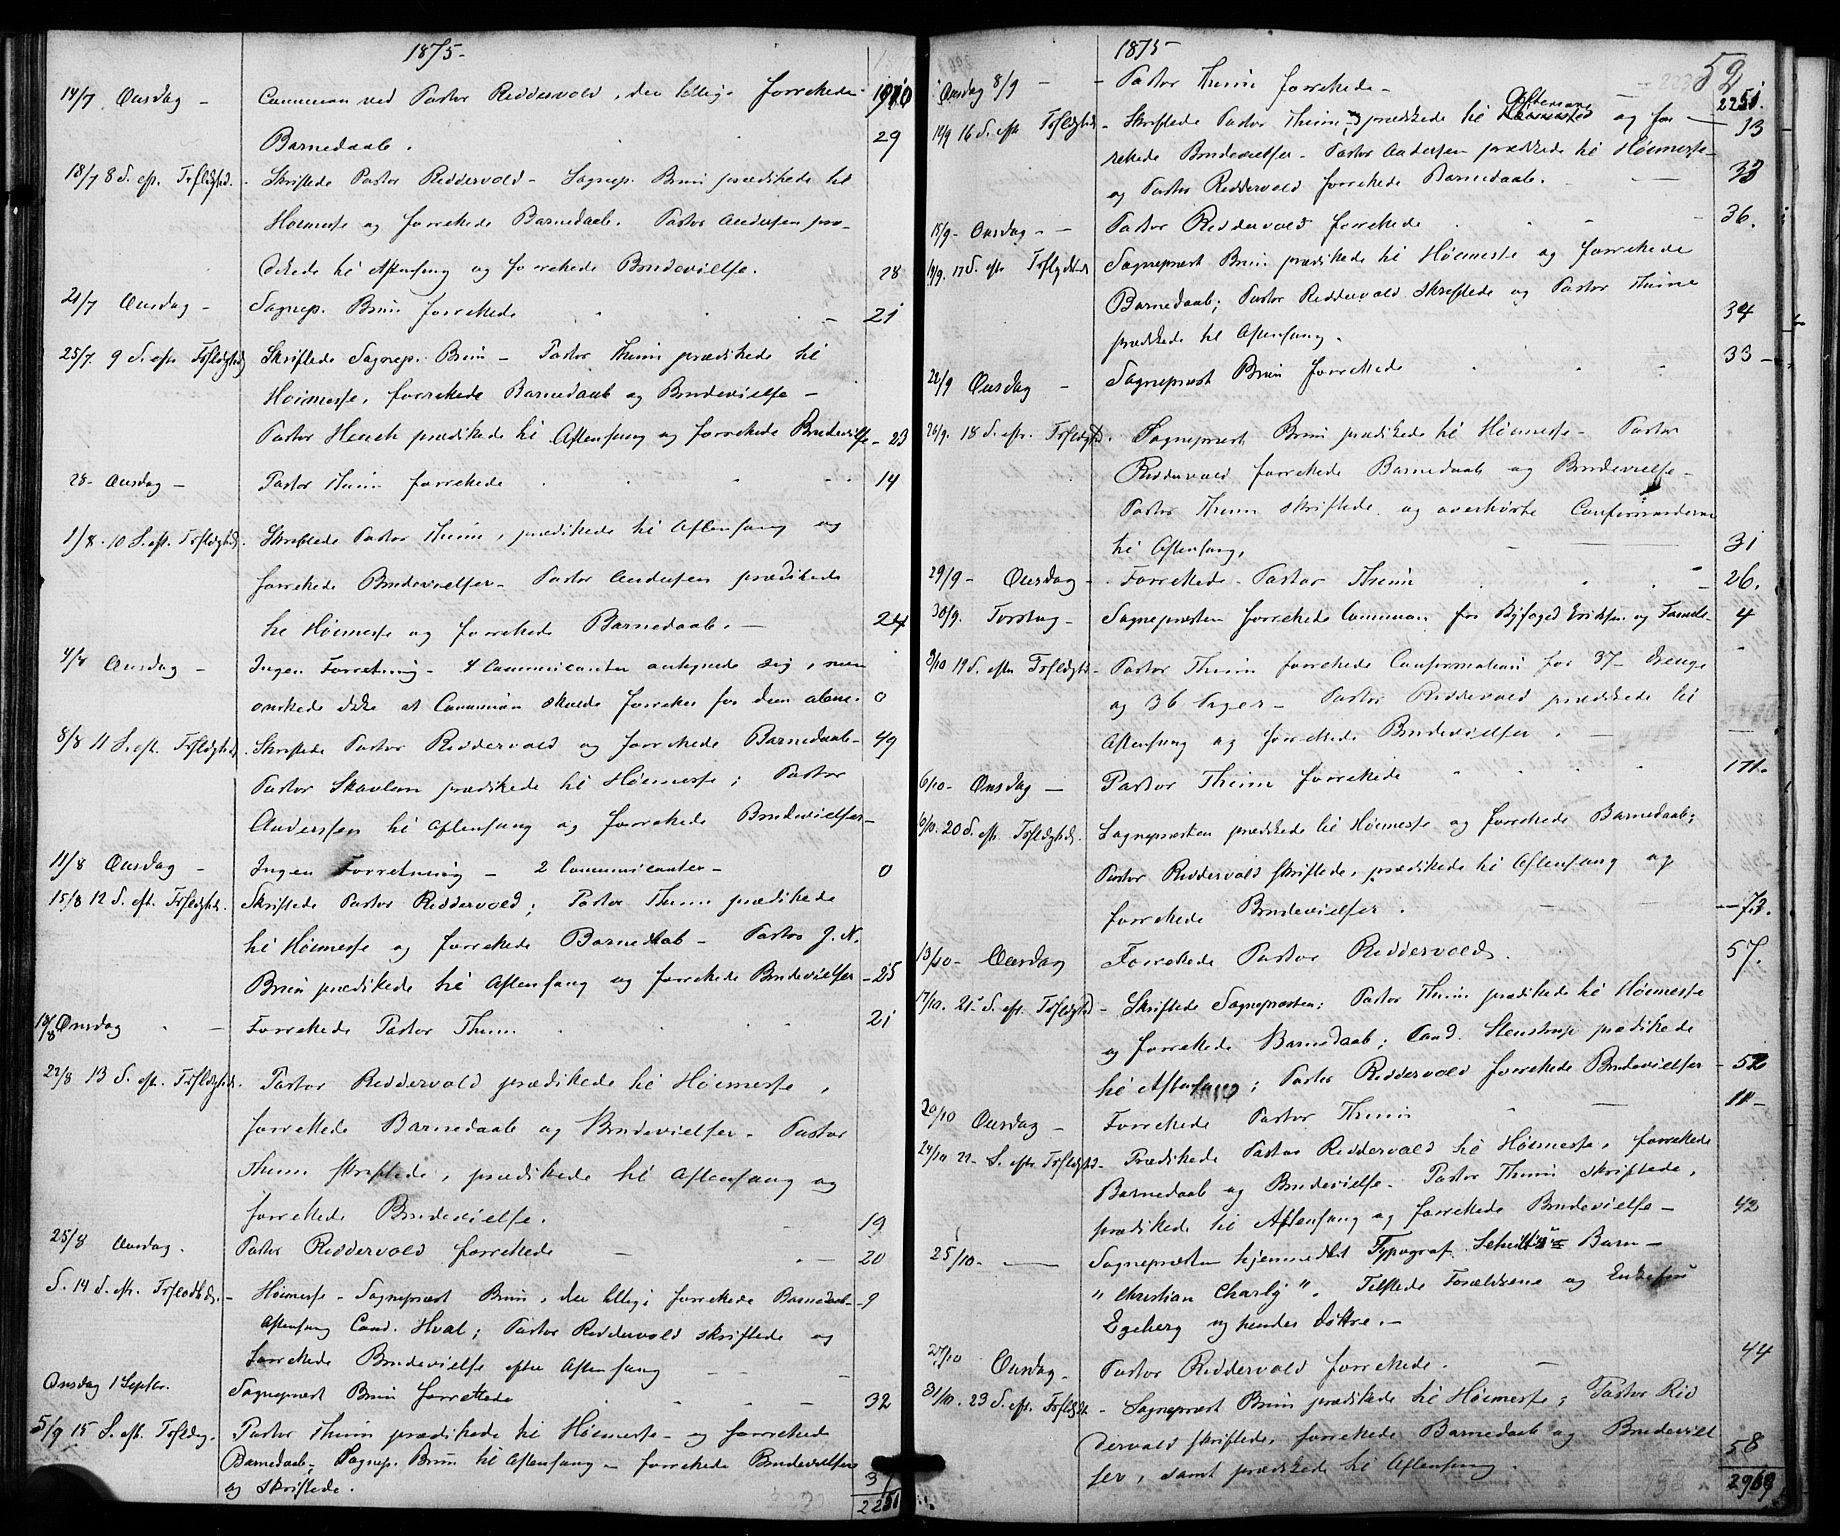 1875.
14/7 Onsdag - Communion ved Pastor Riddervold, der tillige forrettede 1910
Barnedaab. 29
18/7 8 S. eft. Trefldghed. - Skriftede Pastor Riddervold - Sognep. Brun prædikede til
Høimesse og forrettede Barnedaab. Pastor Andersen præ-
dikede til Aftensang og forrettede Brudevielse. 28
21/7 Onsdag - Sognep. Brun forrettede - 21
25/7 9 S. eft. Trefldghed Skriftede Sognep. Brun - Pastor Thum prædikede til
Høimesse, forrettede Barnedaab og Brudevielse -
Pastor Heuch prædikede til Aftensang og forrettede Brudevielse - 23
28- Onsdag - Pastor Thum forrettede 14
1/8. 10 S. eft. Trefldghed. Skriftede Pastor Thum, prædikede til Aftensang og
forrettede Brudevielser - Pastor Andersen prædikede
til Høimesse og forrettede Barnedaab. - 24
4/8 Onsdag - Ingen Forretning - 4 Communicanter antegnede sig, men
ønskede ikke at Communion skulde forrettes for dem alene. 0
8/8 11 S. eft. Trefldghed. Skriftede Pastor Riddervold og forrettede Barnedaab - 49
Pastor Skavlan prædikede til Høimesse; Pastor
Anderssen til Aftensang og forrettede Brudevielser -
11/8 Onsdag - Ingen Forretning - 2 Communicanter - 0
15/8 12 S. eft. Trefldghed. Skriftede Pastor Riddervold; Pastor Thum prædikede
til Høimesse og forrettede Barnedaab - Pastor J. N.
Brun prædikede til Aftensang og forrettede Brudevielser - 25
18/8 Onsdag - Forrettede Pastor Thum. 21
22/8 13 S. eft. Trefldghed. Pastor Riddervold prædikede til Høimesse,
forrettede Barnedaab og Brudevielser - Pastor
Thum skriftede, prædikede til Aftensang og
forrettede Brudevielse. 19
25/8 Onsdag. Pastor Riddervold forrettede - 20
S. 14 S. eft. Trefoldhd. - Høimesse - Sognepræst Brun, der tillige forrettede Barnedaab - 9
Aftensang Cand. Hval; Pastor Riddervold skriftede og
forrettede Brudevielse efter Aftensang
Onsdag 1 Septbr. Sognepræst Brun forrettede - 32
5/9 15 S. eft. Trefldhg. Pastor Thum prædikede til Høimesse - og forrettede
Barnedaab; Sognep. Brun til Aftensang - forrettede Brudevielser
og skriftede. 3
2251
52
1875
Onsdag 8/9 - Pastor Thum forrettede - 2251.
12/9 16 S. eft Trefldghed - Skriftede Pastor Thum, og prædikede til Aftensang og for- 13
rettede Brudevielser - Pastor Andersen prædikede til Høimesse -
og Pastor Riddervold forrettede Barnedaab. 33
15/9- Onsdag - Pastor Riddervold forrettede 36.
19/9. 17 S. eft Trefldghed Sognepræst Brun prædikede til Høimesse og forrettede
Barnedaab; Pastor Riddervold skriftede og Pastor Thume
prædikede til Aftensang. 34
22/9 Onsdag - Sognepræst Brun forrettede 33 -
26/9. 18 S. eft. Trefldghed. Sognepræst Brun prædikede til Høimesse - Pastor
Riddervold forrettede Barnedaab og Brudevielse -
Pastor Thum skriftede og overhørte Confirmanderne
til Aftensang, 31
29/9 - Onsdag - Forrettede Pastor Thum 26.
30/9. Torsdag - Sognepræsten forrettede Communion for Byfoged Eriksen og Familie - 4
3/10 19 S. eften Trefldghd - Pastor Thum forrettede Confirmation for 37 Drenge
og 36 Piger - Pastor Riddervold prædikede til
Aftensang og forrettede Brudevielser.
6/10- Onsdag - Pastor Thum forrettede 171.
10/10. 20 S. eft. Trefldghed. Sognepræsten prædikede til Høimesse og forrettede Barnedaab;
Pastor Riddervold skriftede, prædikede til Aftensang og
forrettede Brudevielser. - 73.
13/10- Onsdag Forrettede Pastor Riddervold. 57.
17/10. 21 S. eft. Trefldghed - Skriftede Sognepræsten; Pastor Thum prædikede til Høimesse
og forrettede Barnedaab; Cand. Stenstrup prædikede
til Aftensang; Pastor Riddervold forrettede Brudevielser - 52
20/10 Onsdag - Forrettede Pastor Thum 11 -
24/10 22 S. eft. Trefldghd - Prædikede Pastor Riddervold til Høimesse, forrettede
Barnedaab og Brudevielse - Pastor Thum skriftede,
prædikede til Aftensang og forrettede Brudevielse - 42
25/10. Sognepræsten hjemmedøbt Typograf Barn -
"Christian Charly". Tilstede Forældrene og Enkefru
Egeberg og hendes Døttre. -
27/10 Onsdag - Pastor Riddervold forrettede. 44
31/10. 23 S. eft. Trefldght - Sognepræst Brun prædikede til Høimesse; Pastor Rid
dervold skriftede, forrettede Barnedaab og Brudeviel
ser, samt prædikede til Aftensang. 58
2969